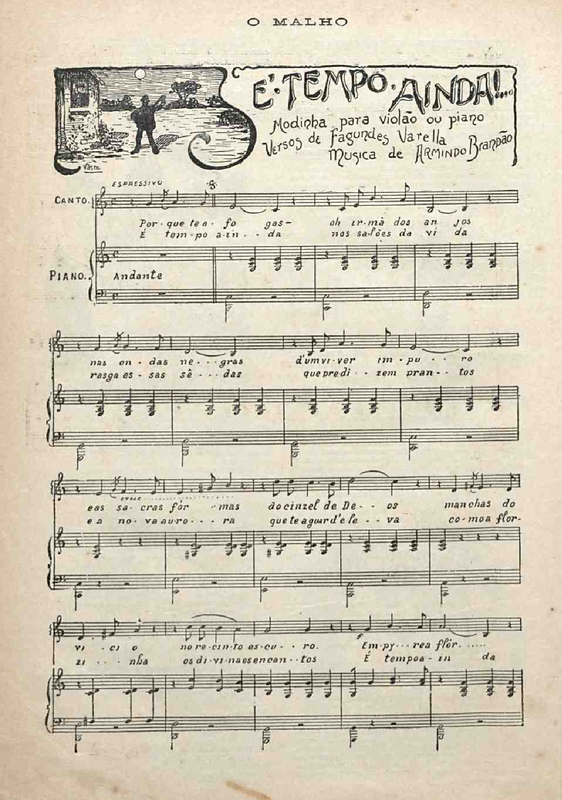 O MALHO
E' TEMPO AINDA!...
Modinha para violão ou piano
Versos de Fagundes Varella
Musica de ARMINDO Brandão
ESPRESSIVO
CANTO.
Por-que te a - fo gas- oh ir-mã dos an-jos
É tem-po a-in - - da nos sa-lões da vi da
PIANO..
Andante
nas on - das ne - - - gras d'um vi-ver im - pu - - ro
rasga es - sas sê - - das que pre-di - - zem pran - - tos
eas sa - cras fór - mas do cinzel de De - - os manchas do
e a no - va auro - - ra que te aguarda le - - va co-mo a flor-
vi - ci o no re-cin-to es-cu - - ro. Em-py - - rea flôr......
zi - - nha os di-vi-naes en can - - tos É tempo a - in da